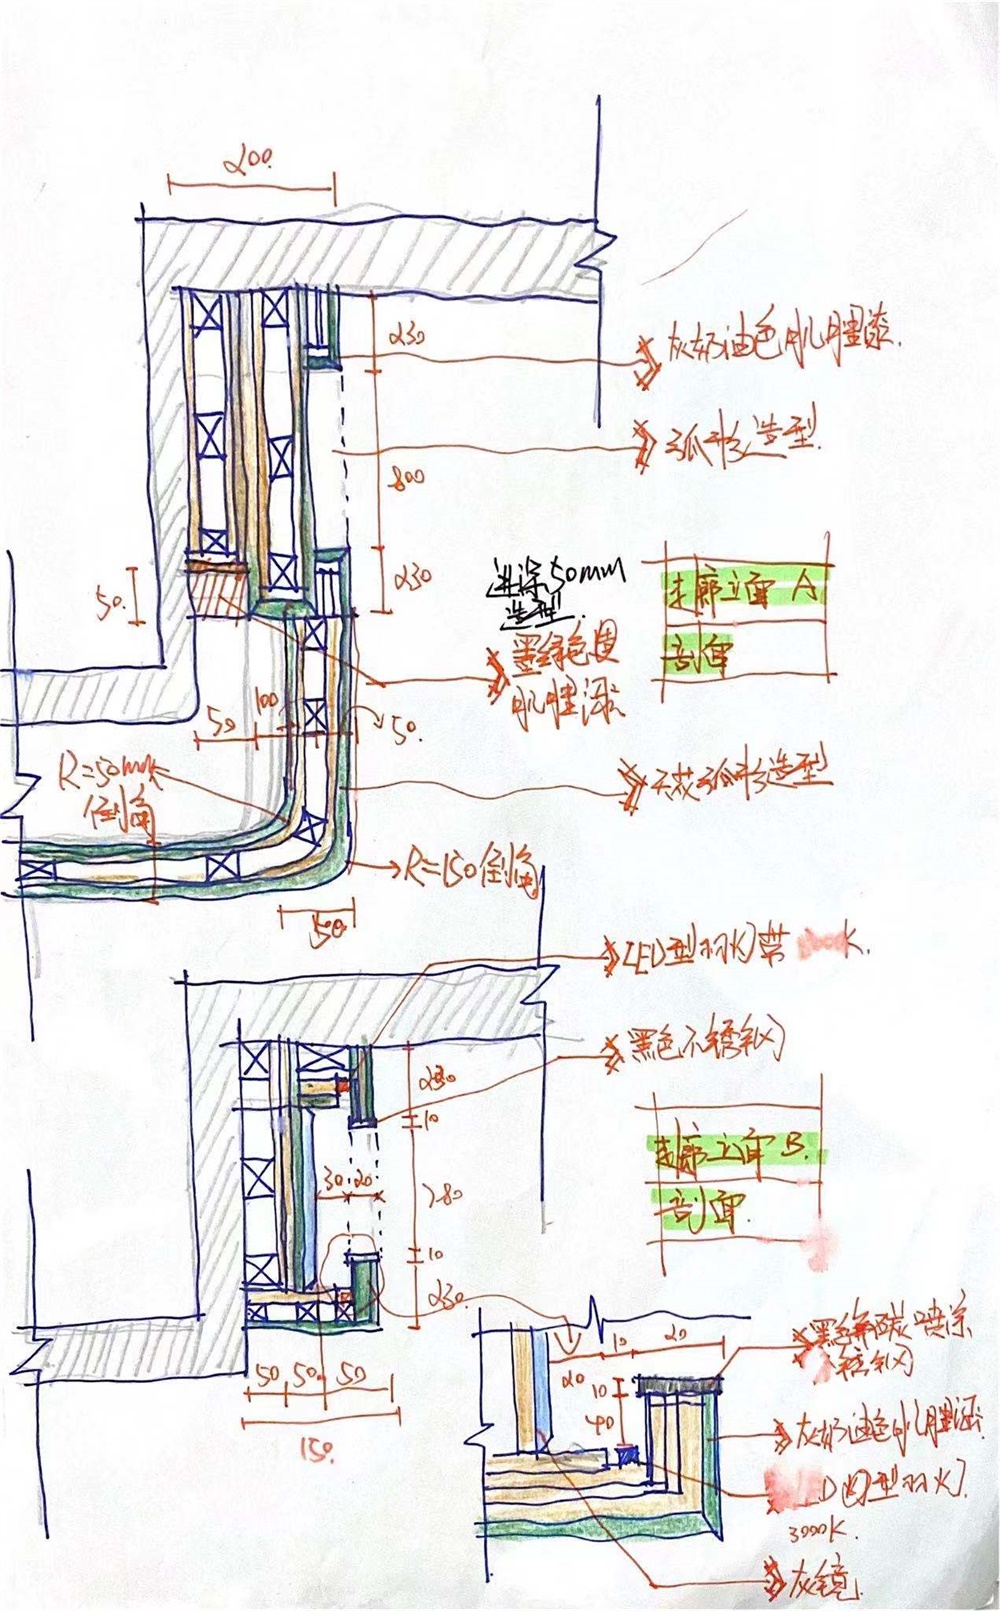 200
230
灰奶油色肌理漆.
弧形造型.
800
230
进深50mm
造型.
走廊立面 A
剖面
50.
墨绿色
肌理漆
100
50
50.
R=50mm
倒角
天花弧形造型
R=150倒角
150
LED型材灯带
K.
黑色不锈钢
230
10
走廊立面 B.
剖面.
30
20
780
10
230.
50
50.
50
150.
10
20
20
10
40
黑色氟碳喷涂
灰奶油色肌理漆.
D 型材灯.
3000K.
灰镜